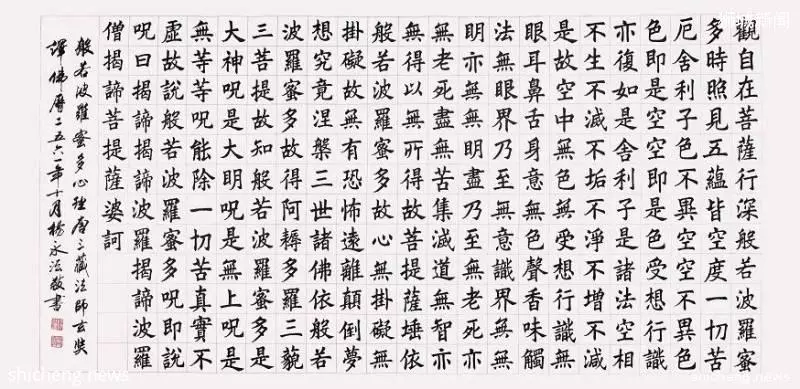 觀自在菩薩行深般若波羅蜜
多時照見五蘊皆空度一切苦
厄舍利子色不異空空不異色
色即是空空即是色受想行識
亦復如是舍利子是諸法空相
不生不滅不垢不淨不增不減
是故空中無色無受想行識無
眼耳鼻舌身意無色聲香味觸
法無眼界乃至無意識界無無
明亦無無明盡乃至無老死亦
無老死盡無苦集滅道無智亦
無得以無所得故菩提薩埵依
般若波羅蜜多故心無掛礙無
掛礙故無有恐怖遠離顛倒夢
想究竟涅槃三世諸佛依般若
波羅蜜多故得阿耨多羅三藐
三菩提故知般若波羅蜜多是
大神呪是大明呪是無上呪是
無等等呪能除一切苦真實不
虛故說般若波羅蜜多呪即說
呪曰揭諦揭諦波羅揭諦波羅
僧揭諦菩提薩婆訶
般若波羅蜜多心経唐三藏法師玄奘
譯佛曆二五六一年十月楊永法敬書
狮城新闻
shicheng.news
shicheng.news